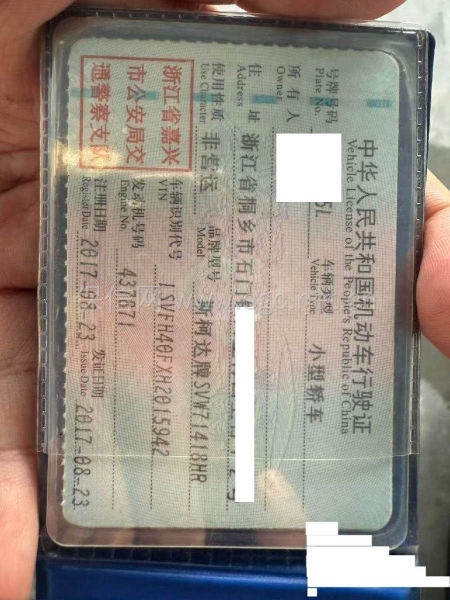 中华人民共和国机动车行驶证
Vehicle License of the People's Republic of China
号牌号码 5L 车辆类型 小型轿车
Plate No. Vehicle Type
所有人
Owner
住址 浙江省桐乡市石门
Address
使用性质 非营运 品牌型号 斯柯达牌SVW71418HR
Use Character Model
浙江省嘉兴
市公安局交
通警察支队
车辆识别代号 LSVFH40FXH2015942
VIN
发动机号码 437671
Engine No.
注册日期 2017-08-23 发证日期 2017-08-23
Register Date Issue Date